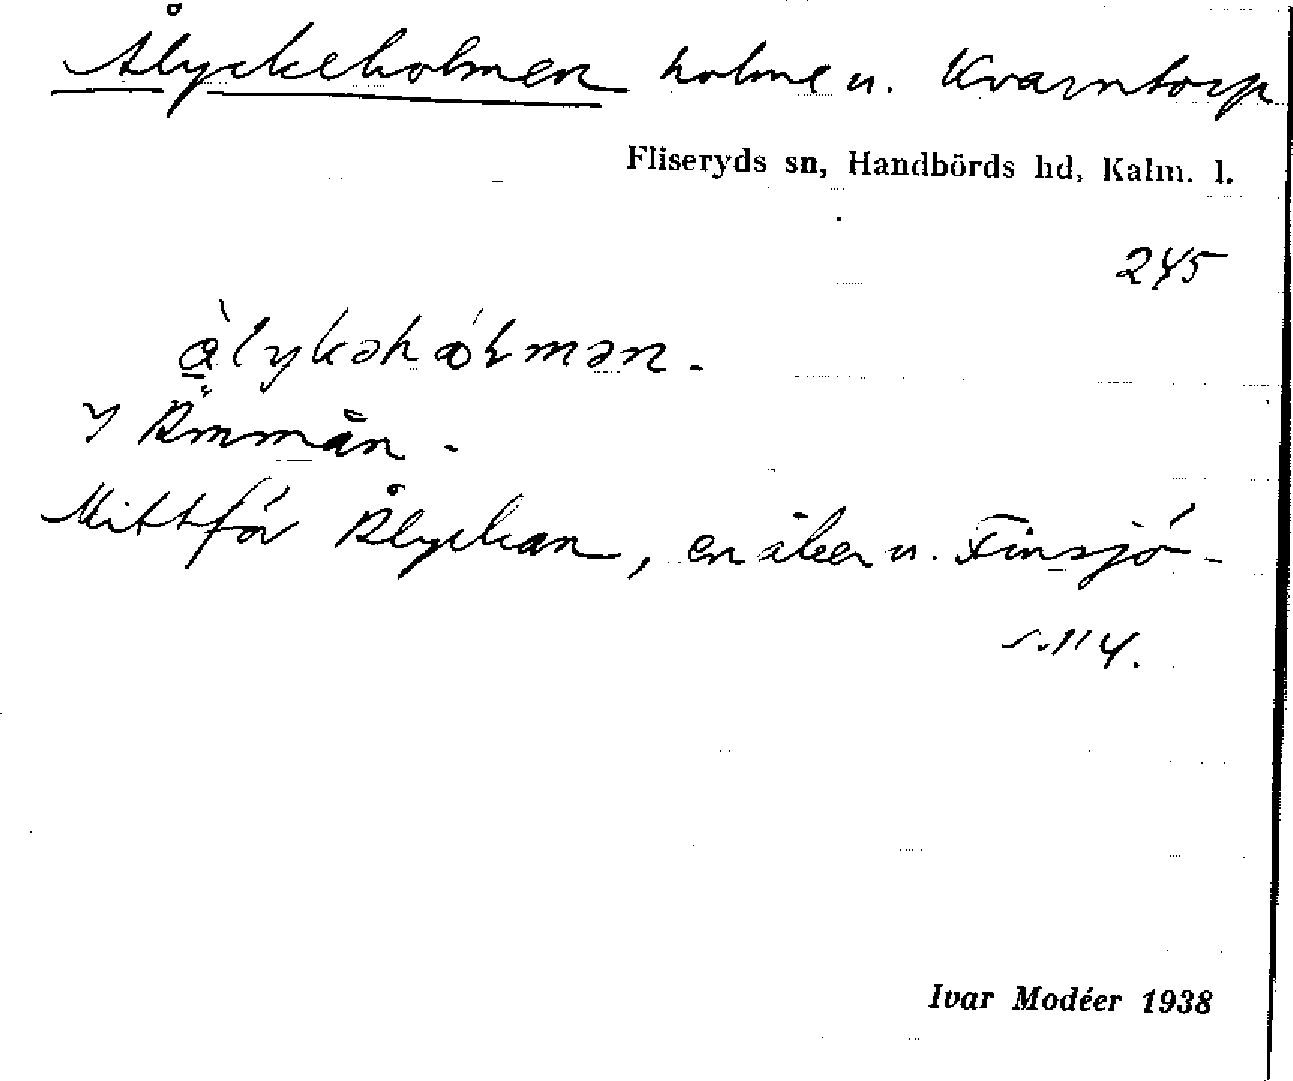 Ålyckeholmen holme u. Kvarntorp
Fliseryds sn, Handbörds hd, Kalm. l.
245
å̀lykəhɔ́ɫmən.
I Ämmån.
Mittför Ålyckan, en åker u. Finsjö
s. 114.
Ivar Modéer 1938